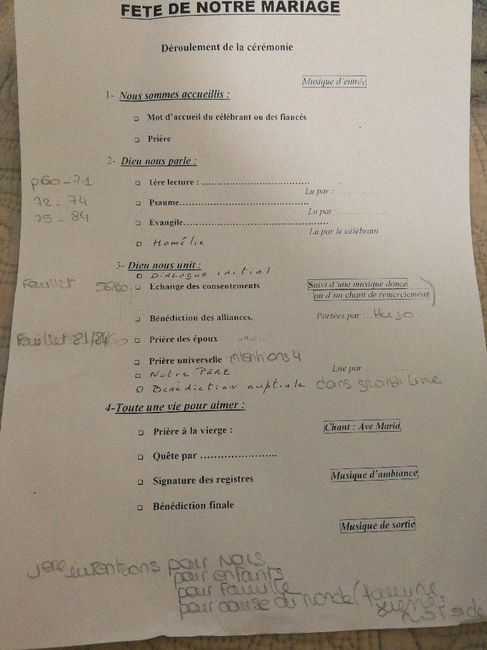 FETE DE NOTRE MARIAGE
Déroulement de la cérémonie
Musique d'entrée
1- Nous sommes accueillis :
Mot d'accueil du célébrant ou des fiancés
Prière
2- Dieu nous parle :
p60-71 1ère lecture : ........................
Lu par : ............
72-74 Psaume........................
Lu par ............
75-84 Evangile........................
Lu par le célébrant
Homélie
3- Dieu nous unit :
Dialogue initial
Feuillet 56/60 Echange des consentements Suivi d'une musique douce
ou d'un chant de remerciement
Bénédiction des alliances. Portées par : ..Hugo
Feuillet 81/84 Prière des époux
Prière universelle intentions 4 Lue par
Notre PERE
Bénédiction nuptiale dans grand livre
4-Toute une vie pour aimer :
Prière à la vierge : Chant : Ave Maria
Quête par ........................
Musique d'ambiance
Signature des registres
Bénédiction finale
Musique de sortie
1ère intentions pour Nous
pour enfants
pour famille
pour cause du monde